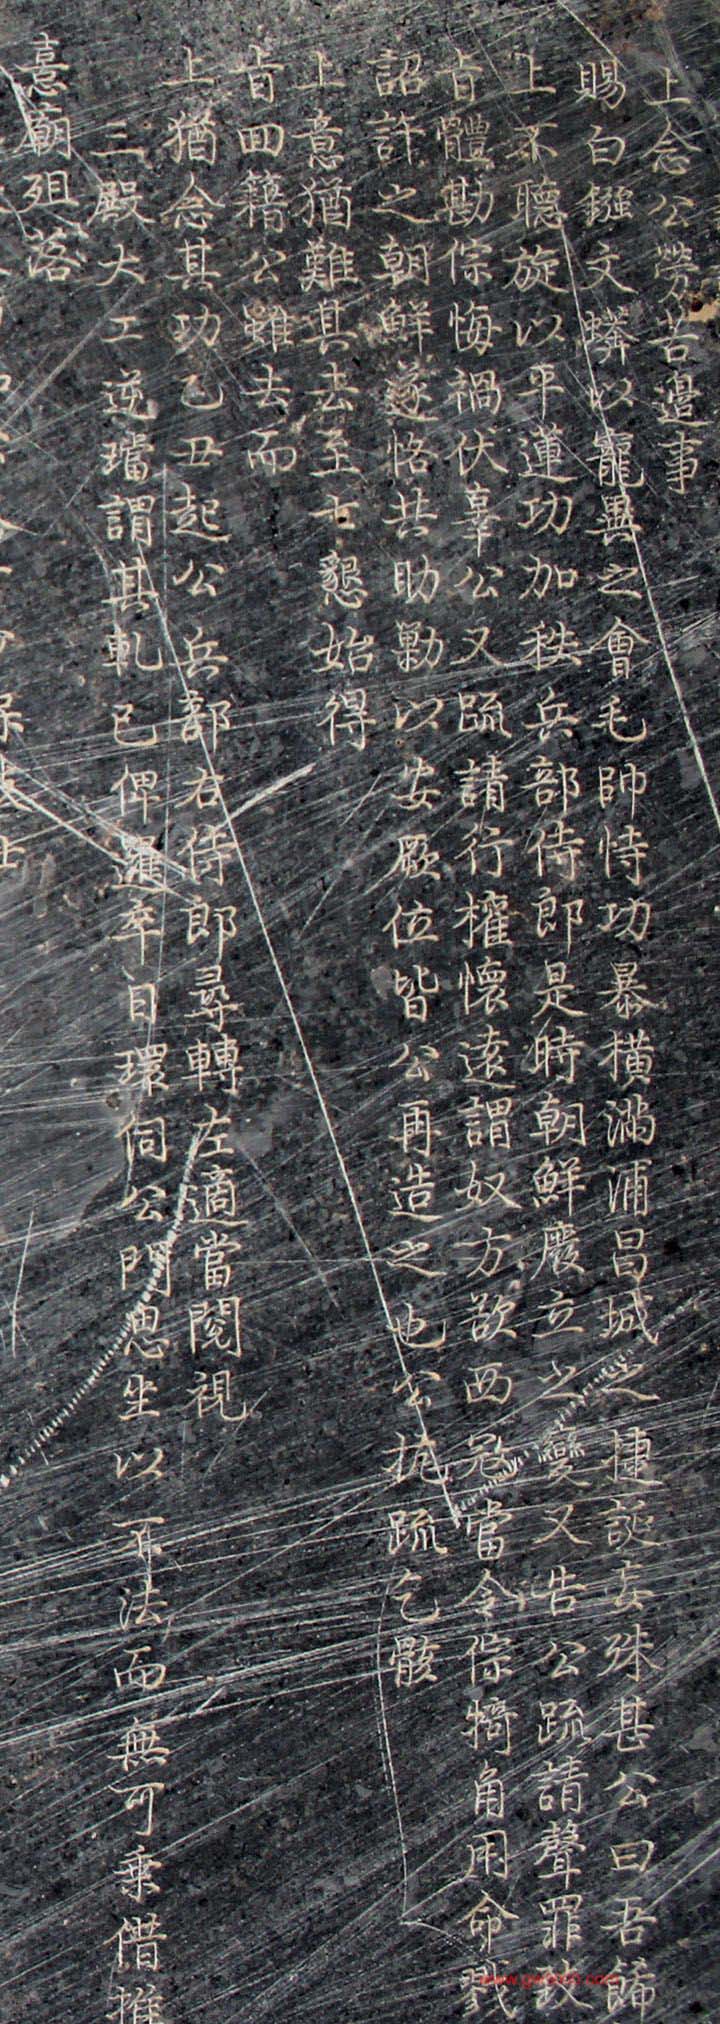 上念公勞苦邊事
賜白鏹文蟒以寵異之會毛帥恃功暴橫滿浦昌城之捷誕妄殊甚公曰吾餙
上不聽旋以平蓮功加秩兵部侍郎是時朝鮮廢立之變又告公疏請聲罪致
旨體勘倧悔禍伏辜公又疏請行權懷遠謂奴方欲西寇當令倧犄角用命戮
詔許之朝鮮遂恪共助勦以安厥位皆公再造之也公抗疏乞骸
上意猶難其去至七懇始得
旨囬籍公雖去而
上猶念其功乙丑起公兵部右侍郎尋轉左適當閱視
三殿大工逆璫謂其軋已俾邏卒目環伺公門思坐以不法而無可乘借推
憙廟殂落
www.gwoodo.com